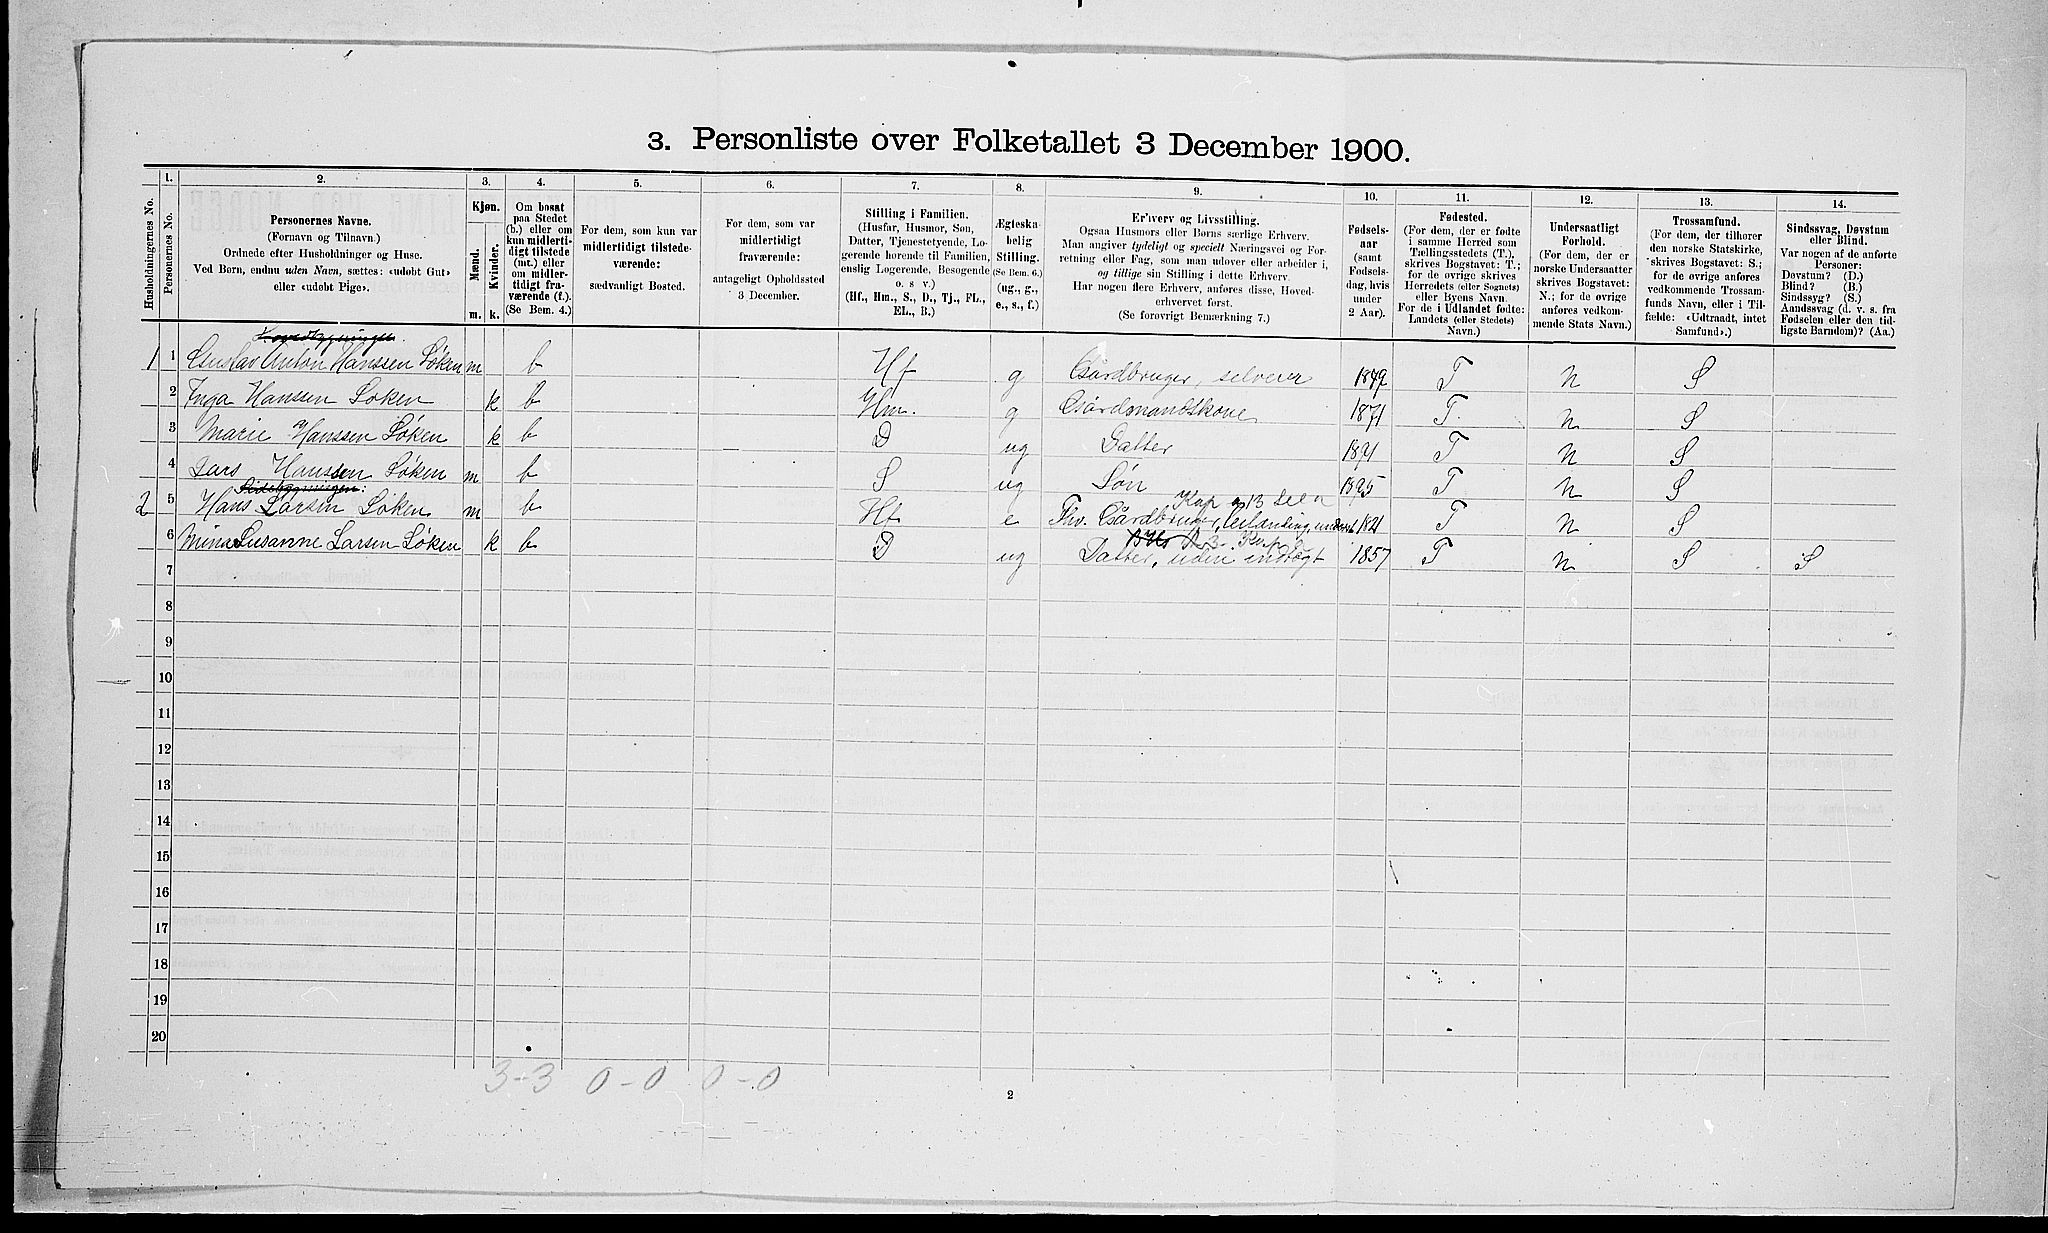 3. Personliste over Folketallet 3 December 1900.
Husholdningernes No.
1.
Personernes No.
2.
Personernes Navne.
(Fornavn og Tilnavn.)
Ordnede efter Husholdninger og Huse.
Ved Børn, endnu uden Navn, sættes: «udøbt Gut»
eller «udøbt Pige».
3.
Kjøn.
Mænd.
Kvinder.
m. k.
4.
Om bosat
paa Stedet
(b.) eller om
kun midlerti-
digt tilstede
(mt.) eller
om midler-
tidigt fra-
værende (f.).
(Se Bem. 4.)
5.
For dem, som kun var
midlertidigt tilstede-
værende:
sædvanligt Bosted.
6.
For dem, som var
midlertidigt
fraværende:
antageligt Opholdssted
3 December.
7.
Stilling i Familien.
(Husfar, Husmor, Søn,
Datter, Tjenestetyende, Lo-
gerende hørende til Familien,
enslig Logerende, Besøgende
o. s v.)
(Hf., Hm., S., D., Tj., FL.,
EL., B.)
8.
Ægteska-
belig
Stilling.
(Se Bem. 6.)
(ug., g.,
e., s., f.)
9.
Erhverv og Livsstilling.
Ogsaa Husmors eller Børns særlige Erhverv.
Man angiver tydeligt og specielt Næringsvei og For-
retning eller Fag, som man udøver eller arbeider i,
og tillige sin Stilling i dette Erhverv.
Har nogen flere Erhverv, anføres disse, Hoved-
erhvervet først.
(Se forøvrigt Bemærkning 7.)
10.
Fødsels-
aar
(samt
Fødsels-
dag, hvis
under
2 Aar).
11.
Fødested.
(For dem, der er fødte
i samme Herred som
Tællingsstedets (T.),
skrives Bogstavet: T.;
for de øvrige skrives
Herredets (eller Sognets)
eller Byens Navn.
For de i Udlandet fødte:
Landets (eller Stedets)
Navn.)
12.
Undersaatligt
Forhold.
(For dem, der er
norske Undersaatter
skrives Bogstavet:
N.; for de øvrige
anføres vedkom-
mende Stats Navn.)
13.
Trossamfund.
(For dem, der tilhører
den norske Statskirke,
skrives Bogstavet: S.;
for de øvrige anføres
vedkommende Trossam-
funds Navn, eller i Til-
fælde: «Udtraadt, intet
Samfund».)
14.
Sindssvag, Døvstum
eller Blind.
Var nogen af de anførte
Personer:
Døvstum? (D.)
Blind? (B.)
Sindssyg? (S.)
Aandssvag (d. v. s. fra
Fødselen eller den tid-
ligste Barndom)? (Aa.)
Hovedbygningen
1 1 Gustav Anton Hanssen Søken m b Hf g Gårdbruger, selveier T N S
2 Inga Hanssen Søken k b Hm. g Gårdmandskone 1871 T. N S
3 Marie Hanssen Søken k b D ug Datter T N S
4 Lars Hanssen Søken m b S ug Søn 1895 T N S
Sidebygningen:
2 5 Hans Larsen Søken m b Hf e Fhv. Gårdbruger, T N S
6 Mina Susanne Larsen Søken k b D ug Datter, uden indtægt 1857 T N S S
7
8
9
10
11
12
13
14
15
16
17
18
19
20
3-3 0-0 0-0
2